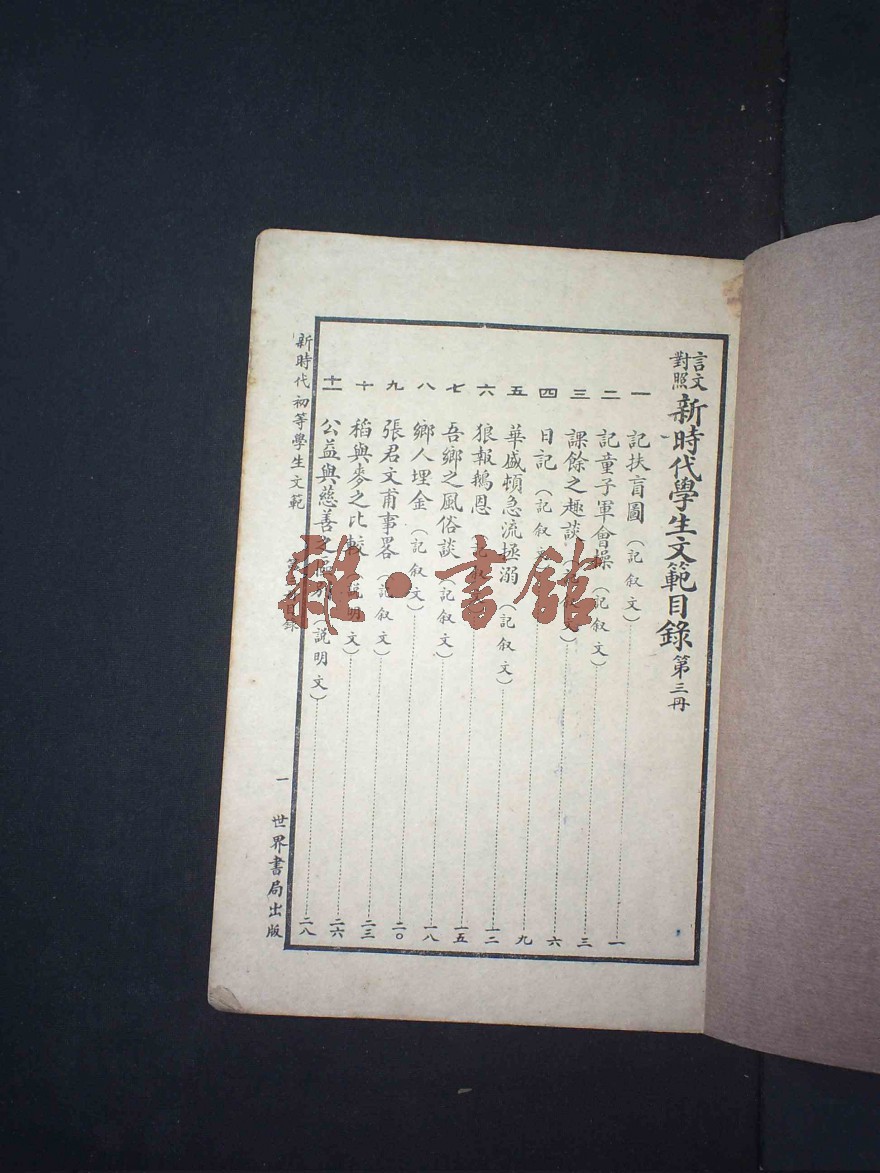 言文對照新時代學生文範目錄第三冊
一 記扶盲圖（記叙文） 一
二 記童子軍會操（記叙文） 三
三 課餘之趣談（記叙文） 六
四 日記（記叙文） 九
五 華盛頓急流拯溺（記叙文） 一二
六 狼報鶴恩（記叙文） 一五
七 吾鄉之風俗談（記叙文） 一八
八 鄉人埋金（記叙文） 二〇
九 張君文甫事畧（記叙文） 二三
十 稻與麥之比較（說明文） 二六
十一 公益與慈善之區別（說明文） 二八
新時代初等學生文範
目錄
一
世界書局出版
雜·書館